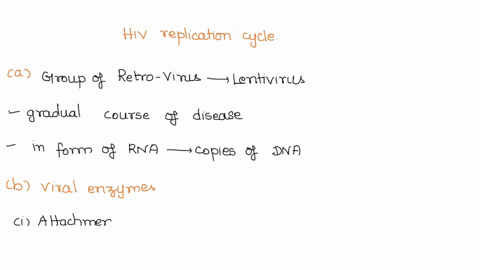 HIV replication cycle.
(a) Group of Retro-Virus → Lentivirus
- gradual course of disease
- in form of RNA → copies of DNA
(b) Viral enzymes
(i) Attachmer